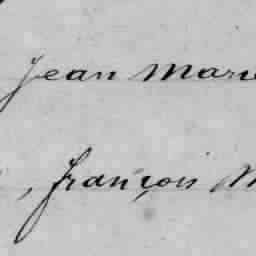 Jean Marie
, françois M